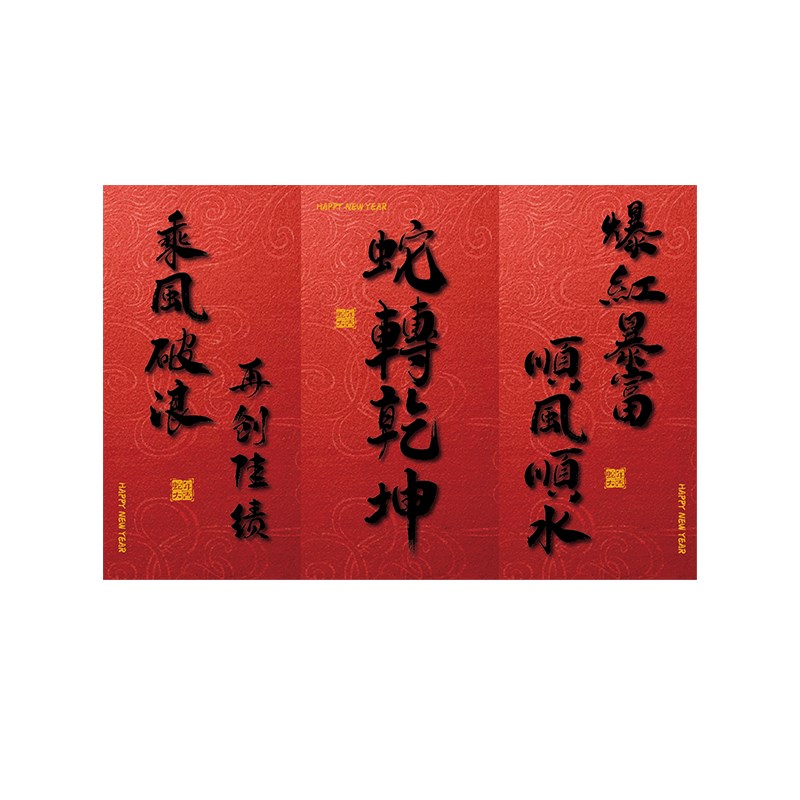 乘風破浪
再创佳绩
HAPPY NEW YEAR
HAPPY NEW YEAR
蛇轉乾坤
爆紅暴富
順風順水
HAPPY NEW YEAR